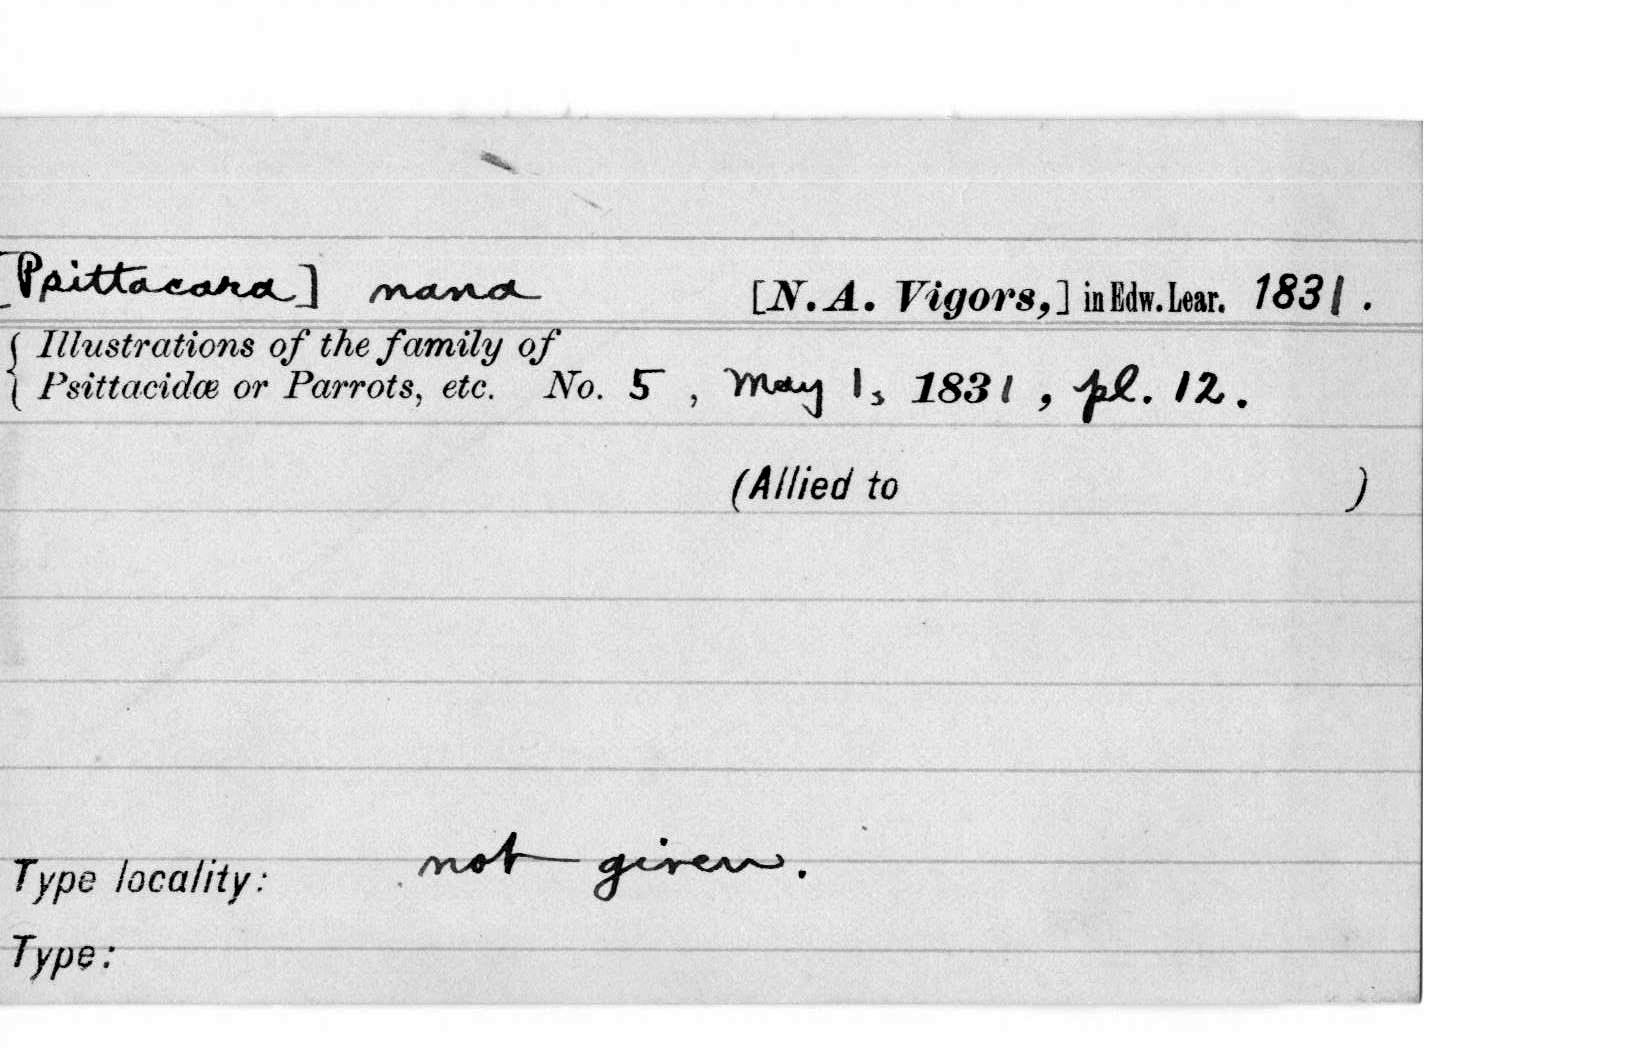 [Psittacara] nana [N. A. Vigors,] in Edw. Lear. 1831.
{ Illustrations of the family of
Psittacidæ or Parrots, etc. No. 5, May 1, 1831, pl. 12.
(Allied to )
Type locality: not given.
Type: